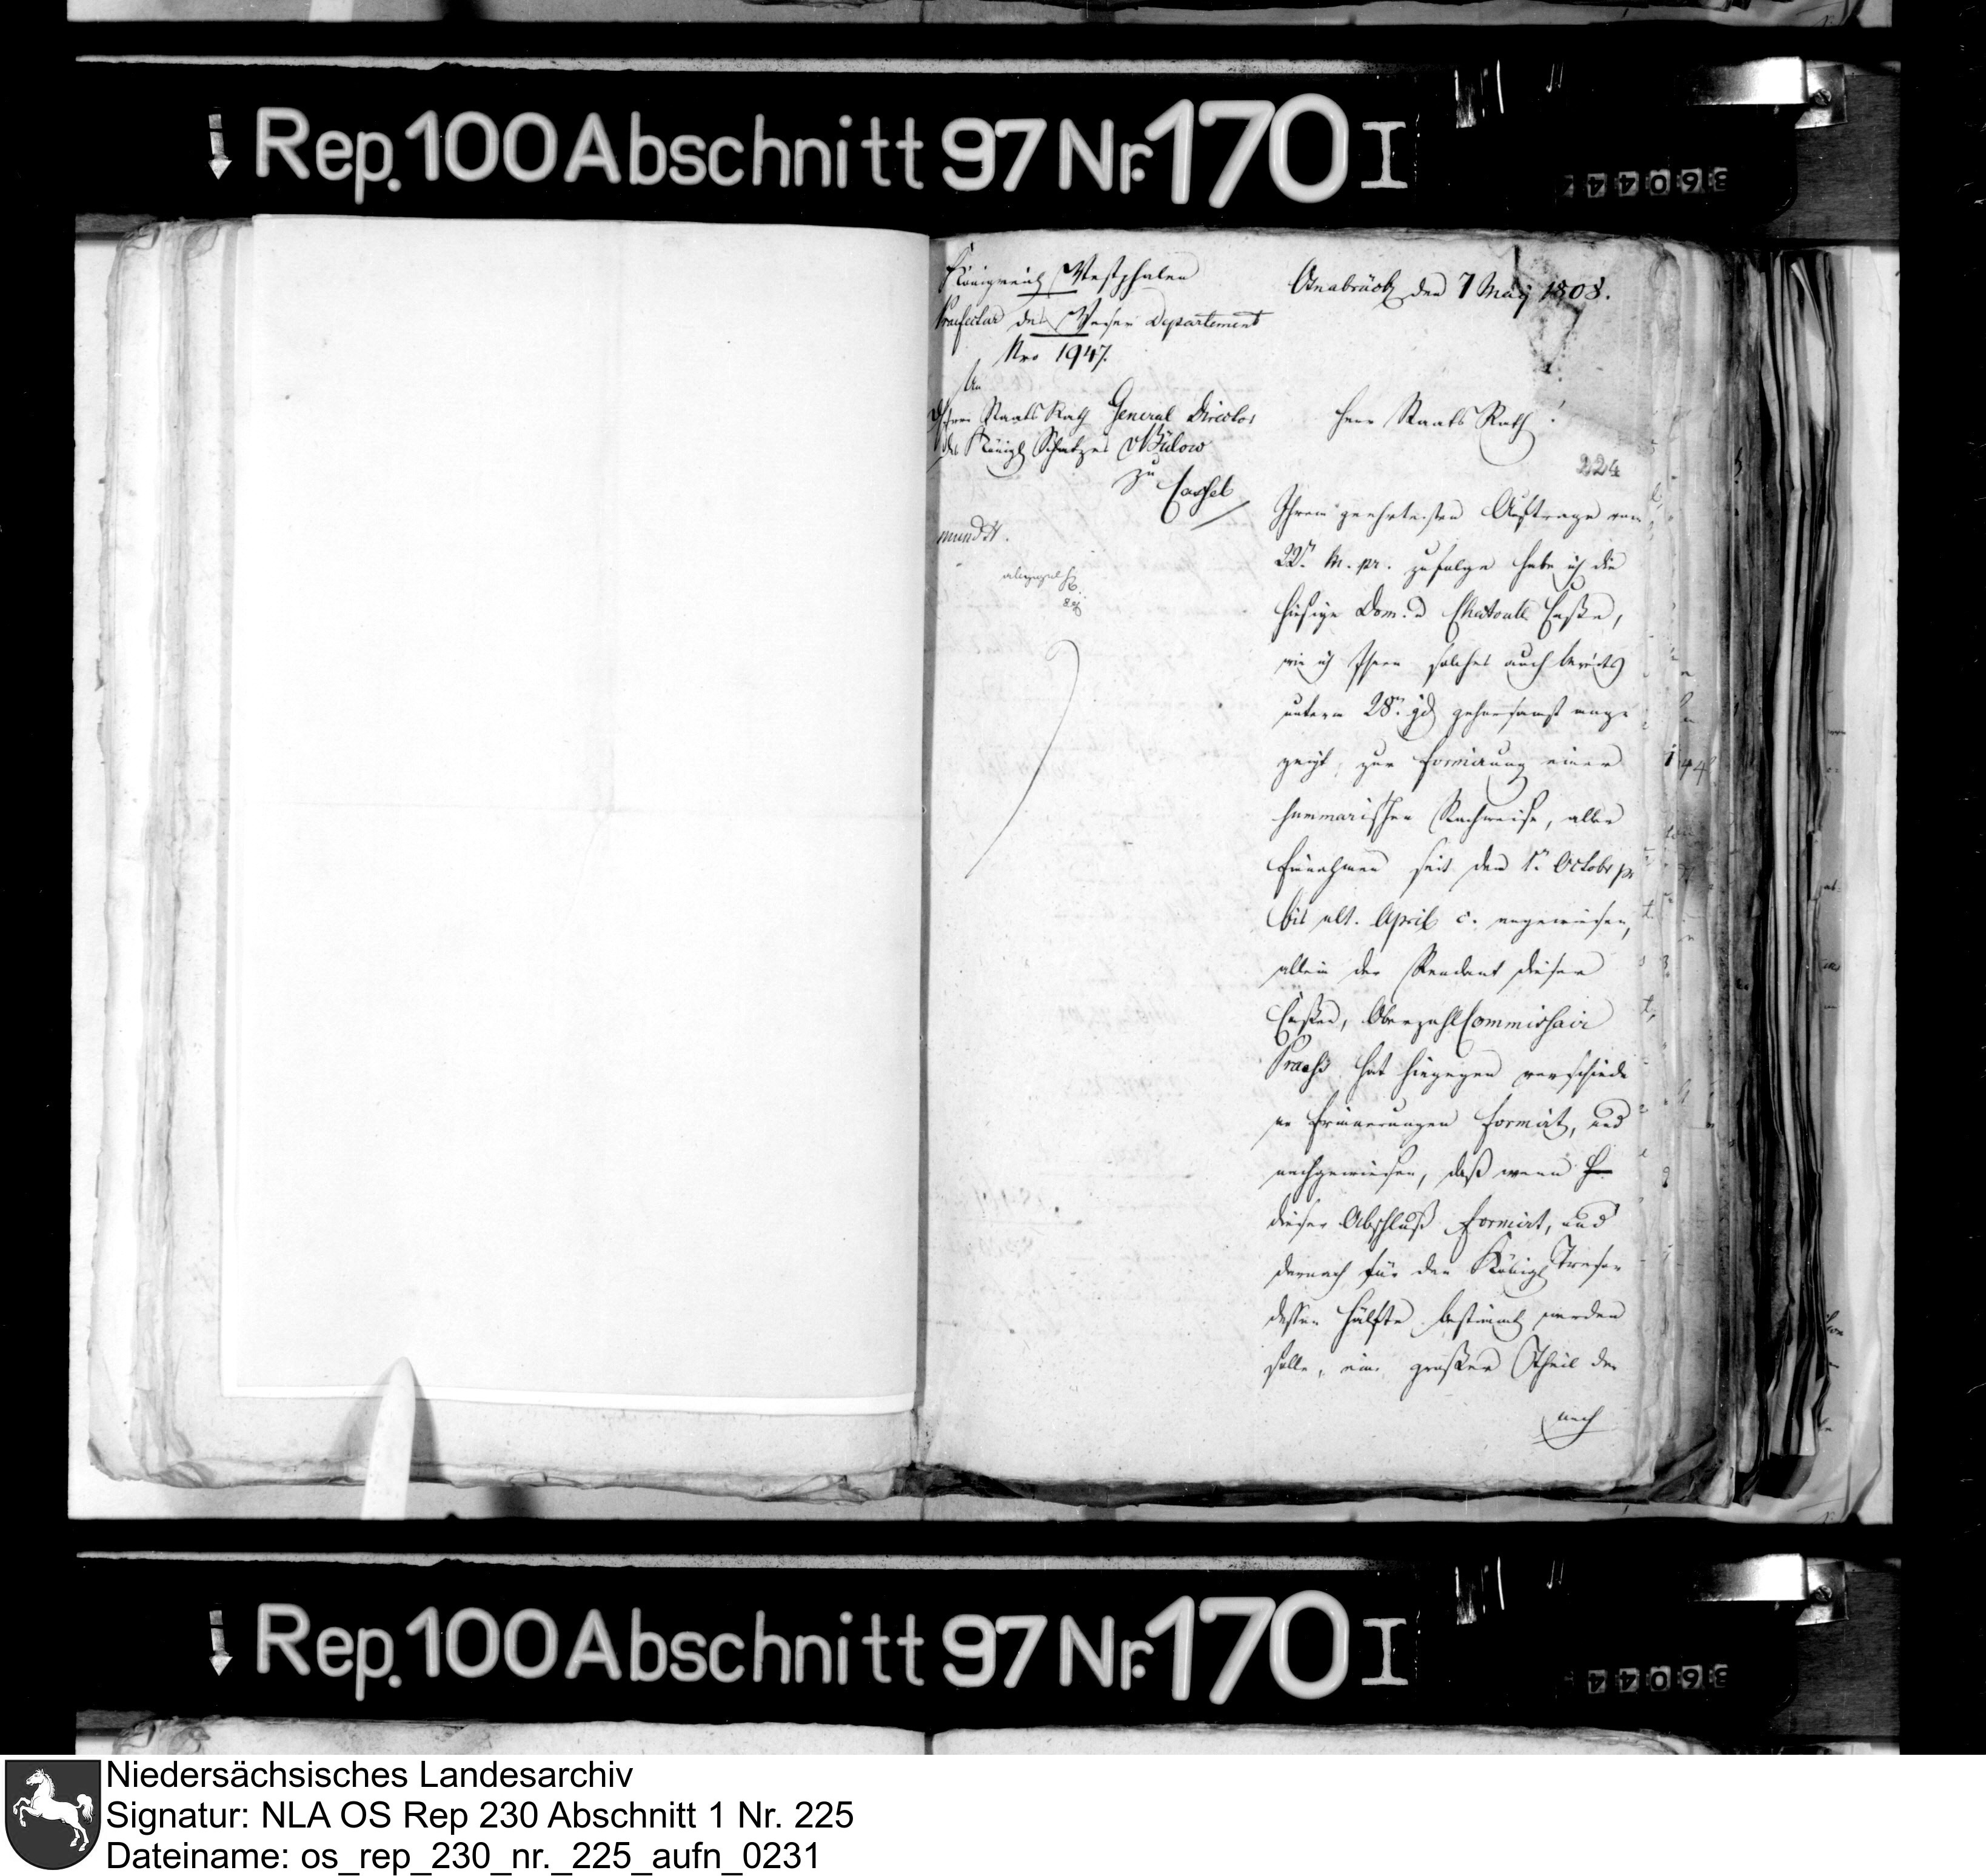 Rep. 100 Abschnitt 97 Nr. 170 I
Königreich Westphalen
Praefectur des Weser Departement
Nro 1947.
An
Herrn Staats Rath General Director
des Königl Schatzes v Bülow
zu Cassel
mundt.
Osnabrück den 7 May 1808.
Herr Staats Rath!
224
Ihrem geehrtesten Auftrage vom
22n. m. pr. zufolge habe ich die
hiesige Dom. Chatoull Casse,
wie ich Ihnen solches auch bereits
unterm 28n. ejd gehorsamst ange
zeigt, zur Formirung einer
summarischen Nachweise, aller
Einnahmen seit dem 1n. Octobr pr
bis ult. April c. angewiesen,
allein der Rendant dieser
Casse, Oberzahl Commissair
hat hiegegen verschiede
ne Erinnerungen formirt, und
nachgewiesen, daß wenn
dieser Abschluß formirt, und
darnach für den Königl Tresor
dessen Hälfte bestimmt werden
solle, ein großer Theil der
noch
Rep. 100 Abschnitt 97 Nr. 170 I
Niedersächsisches Landesarchiv
Signatur: NLA OS Rep 230 Abschnitt 1 Nr. 225
Dateiname: os_rep_230_nr._225_aufn_0231